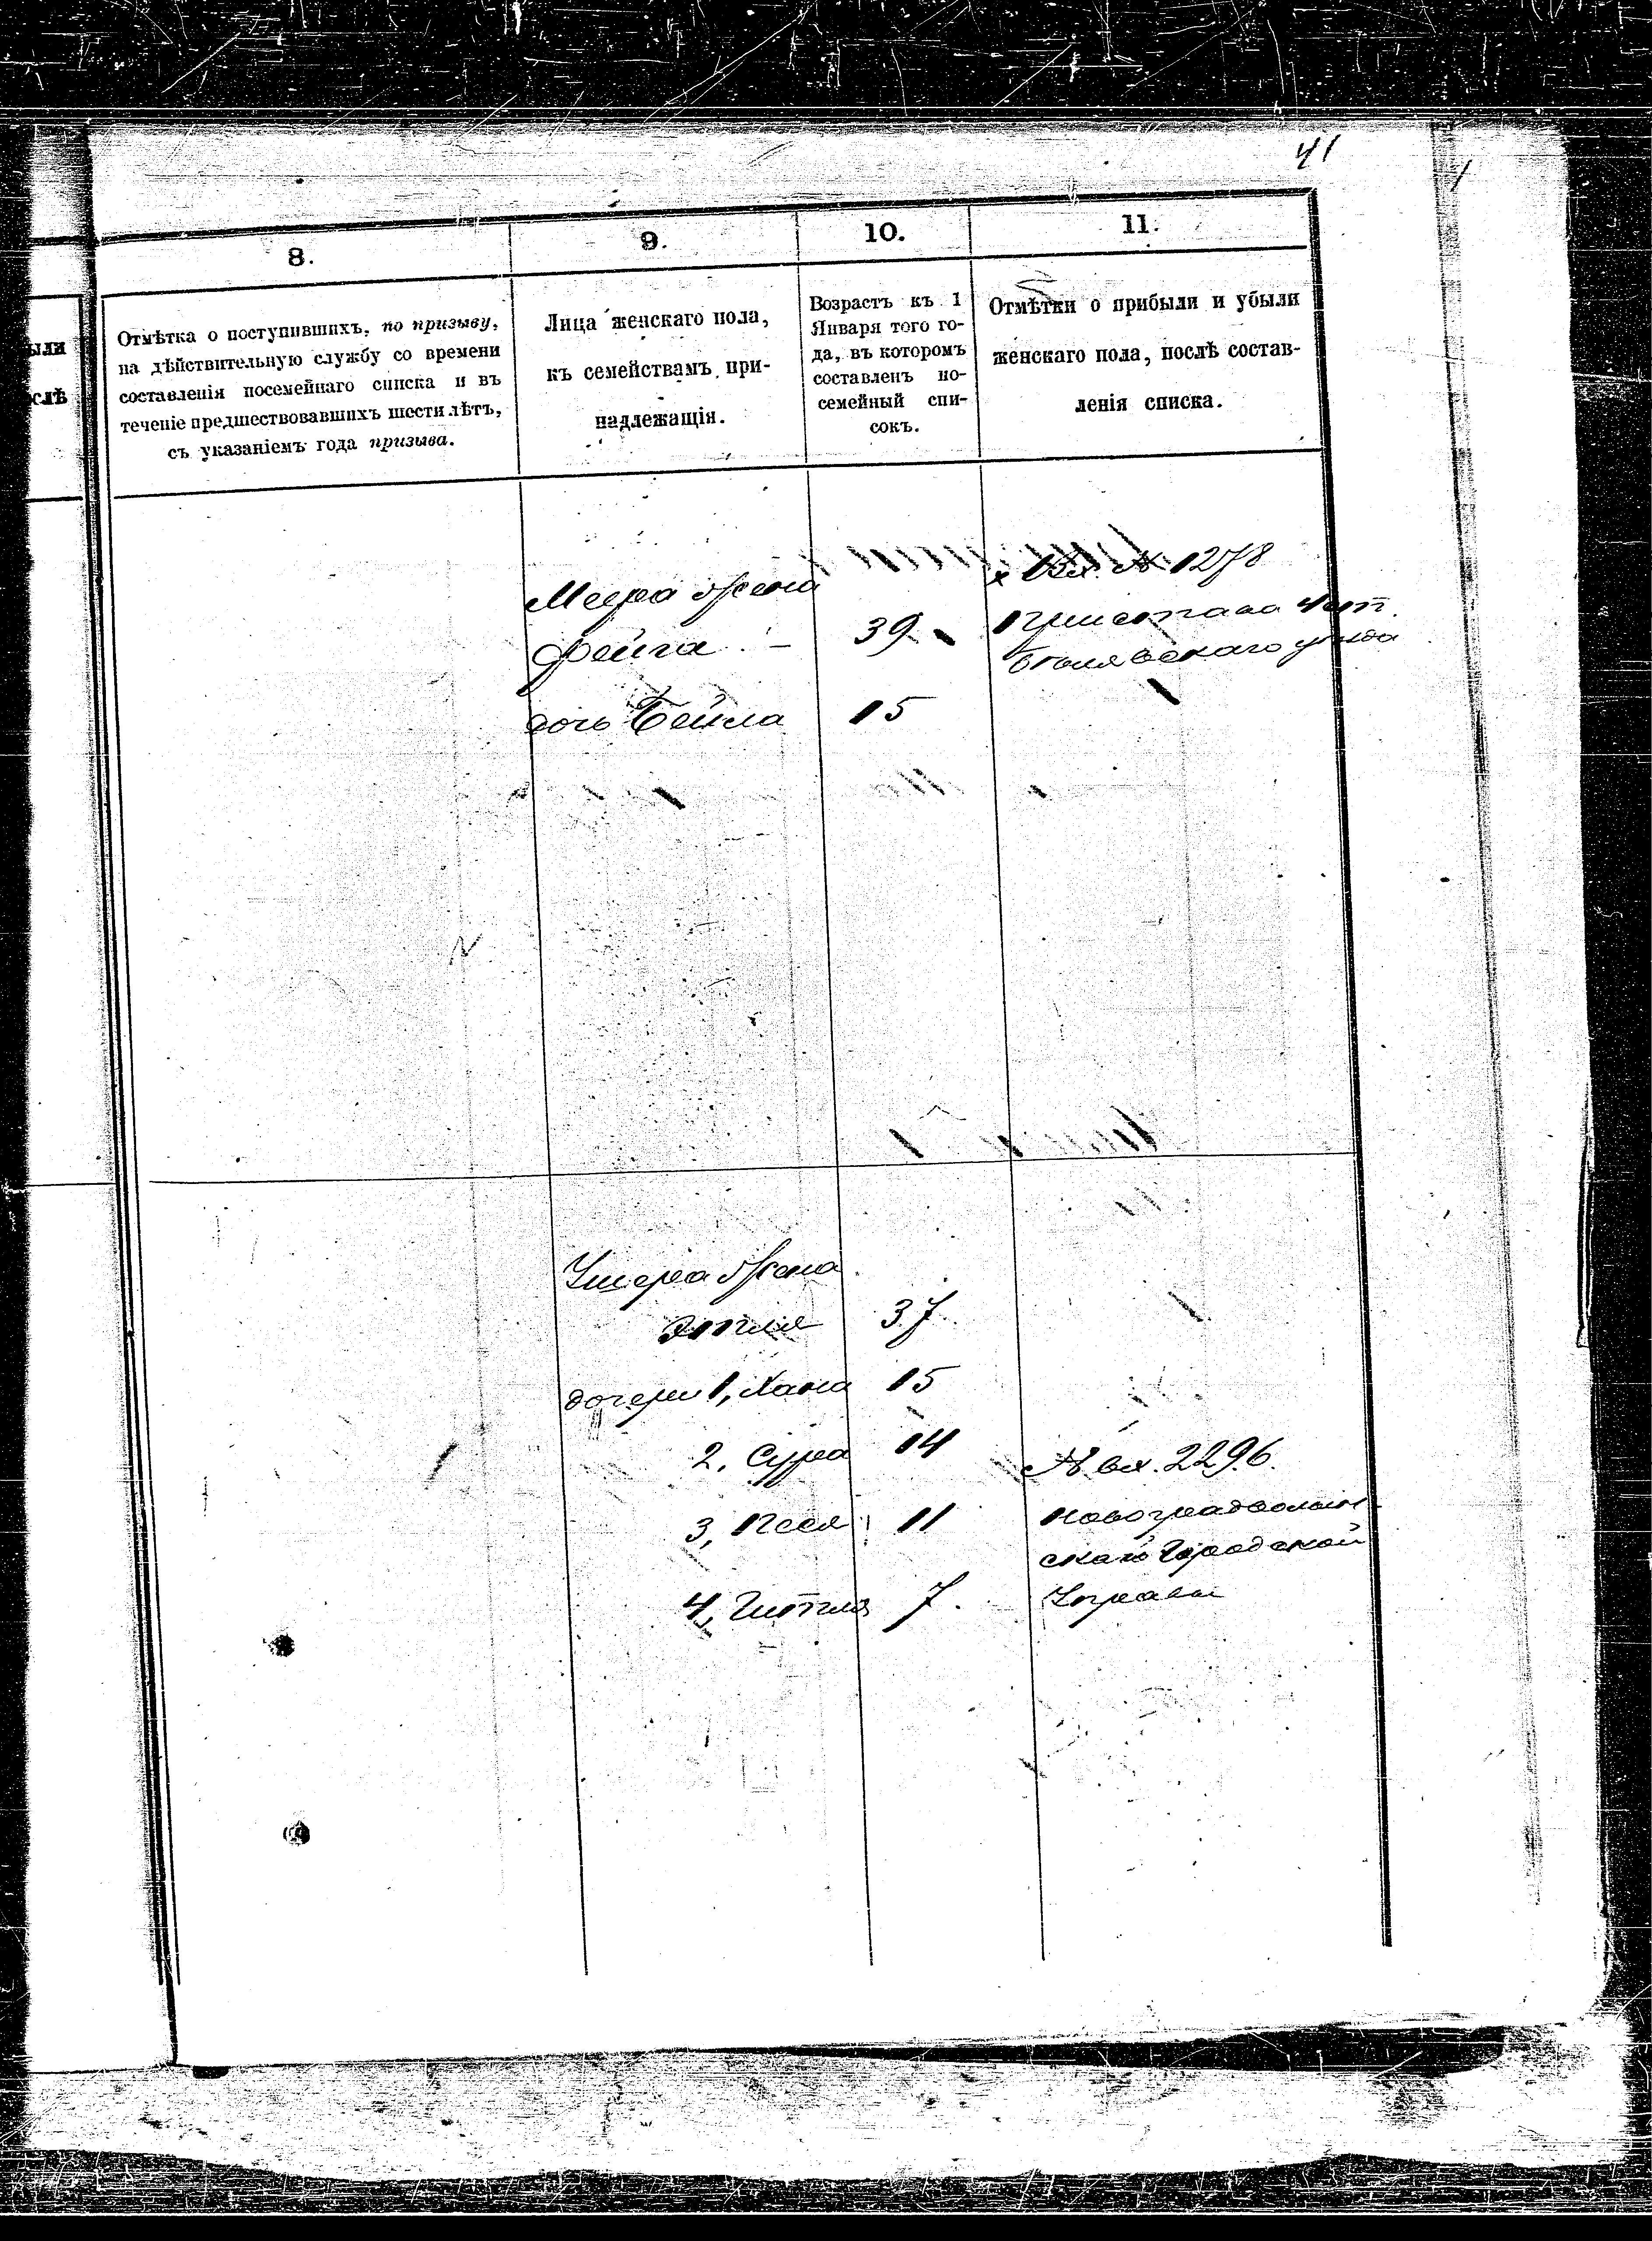 41
8.
9.
10.
11.
ыли
слѣ
Отмѣтка о поступившихъ, по призыву,
на дѣйствительную службу со времени
составленія посемейнаго списка и въ
теченіе предшествовавшихъ шести лѣтъ,
съ указаніемъ года призыва.
Лица женскаго пола,
къ семействамъ при-
надлежащія.
Возрастъ къ 1
Января того го-
да, въ которомъ
составленъ по-
семейный спи-
сокъ.
Отмѣтки о прибыли и убыли
женскаго пола, послѣ состав-
ленія списка.
Меера жена
Фейга 39
дочь Бейла 15
Вх. № 1278
Пристава
уѣзда
Ушера жена
Этля 37
дочери 1, Хана 15
2, Сура 14
3, Песя 11
4, Гитля 7.
№ вх. 2296.
Новоградволын-
скаго Городской
Управы